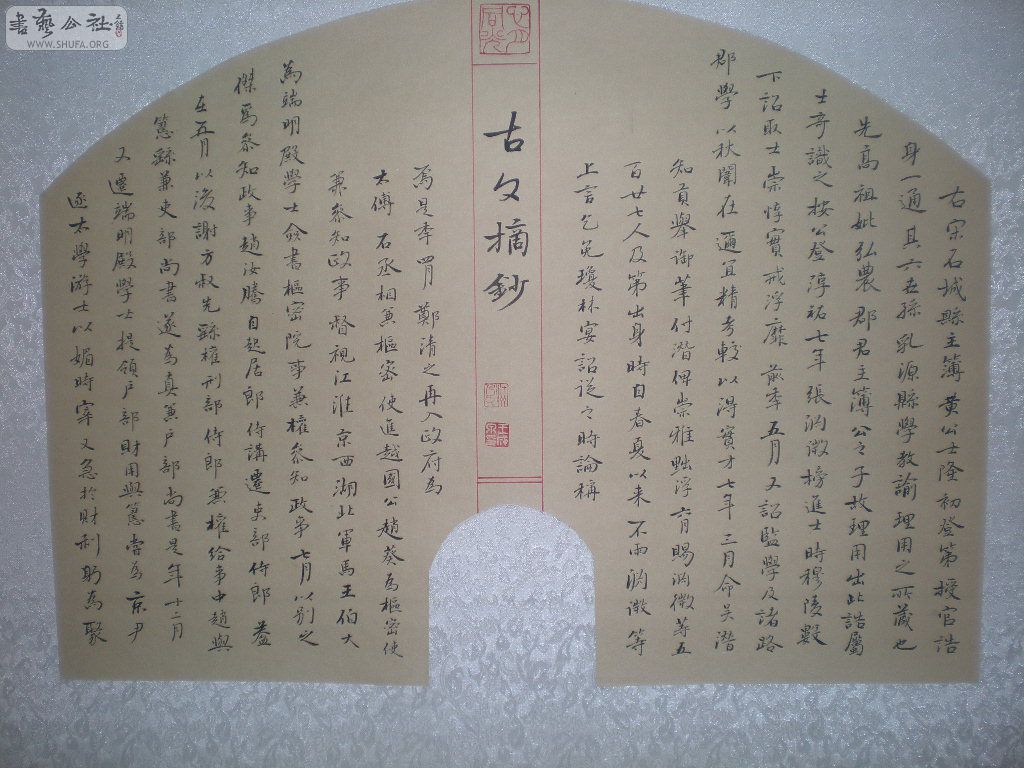 書藝公社
WWW.SHUFA.ORG
右宋石城縣主簿黃公士隆初登第授官誥
身一通具六五孫乳源縣學教諭理用之所藏也
先高祖妣弘農郡君主簿公之子故理用出此誥屬
士奇識之按公登淳祐七年張淵微榜進士時穆陵數
下詔取士崇惇實戒浮靡前年五月又詔監學及諸路
郡學以秋闈在邇宜精考較以得實才七年三月命吳潛
知貢舉御筆付潛俾崇雅黜浮六月賜淵微等五
百廿七人及第出身時自春夏以来不雨淵微等
上言乞免瓊林宴詔從之時論稱
古文摘鈔
為是年四月鄭清之再入政府為
太傅右丞相兼樞密使進越國公趙葵為樞密使
兼參知政事督視江淮京西湖北軍馬王伯大
為端明殿學士僉書樞密院事兼權參知政事七月以別之
傑為參知政事趙汝騰自起居郎侍講遷吏部侍郎蓋
在五月以後謝方叔先繇權刑部侍郎兼權給事中趙與
𥲅繇兼吏部尚書遂為真兼戶部尚書是年十二月
又遷端明殿學士提領戶部財用與𥲅嘗為京尹
逐太學游士以媚時宰又急於財利躬為聚